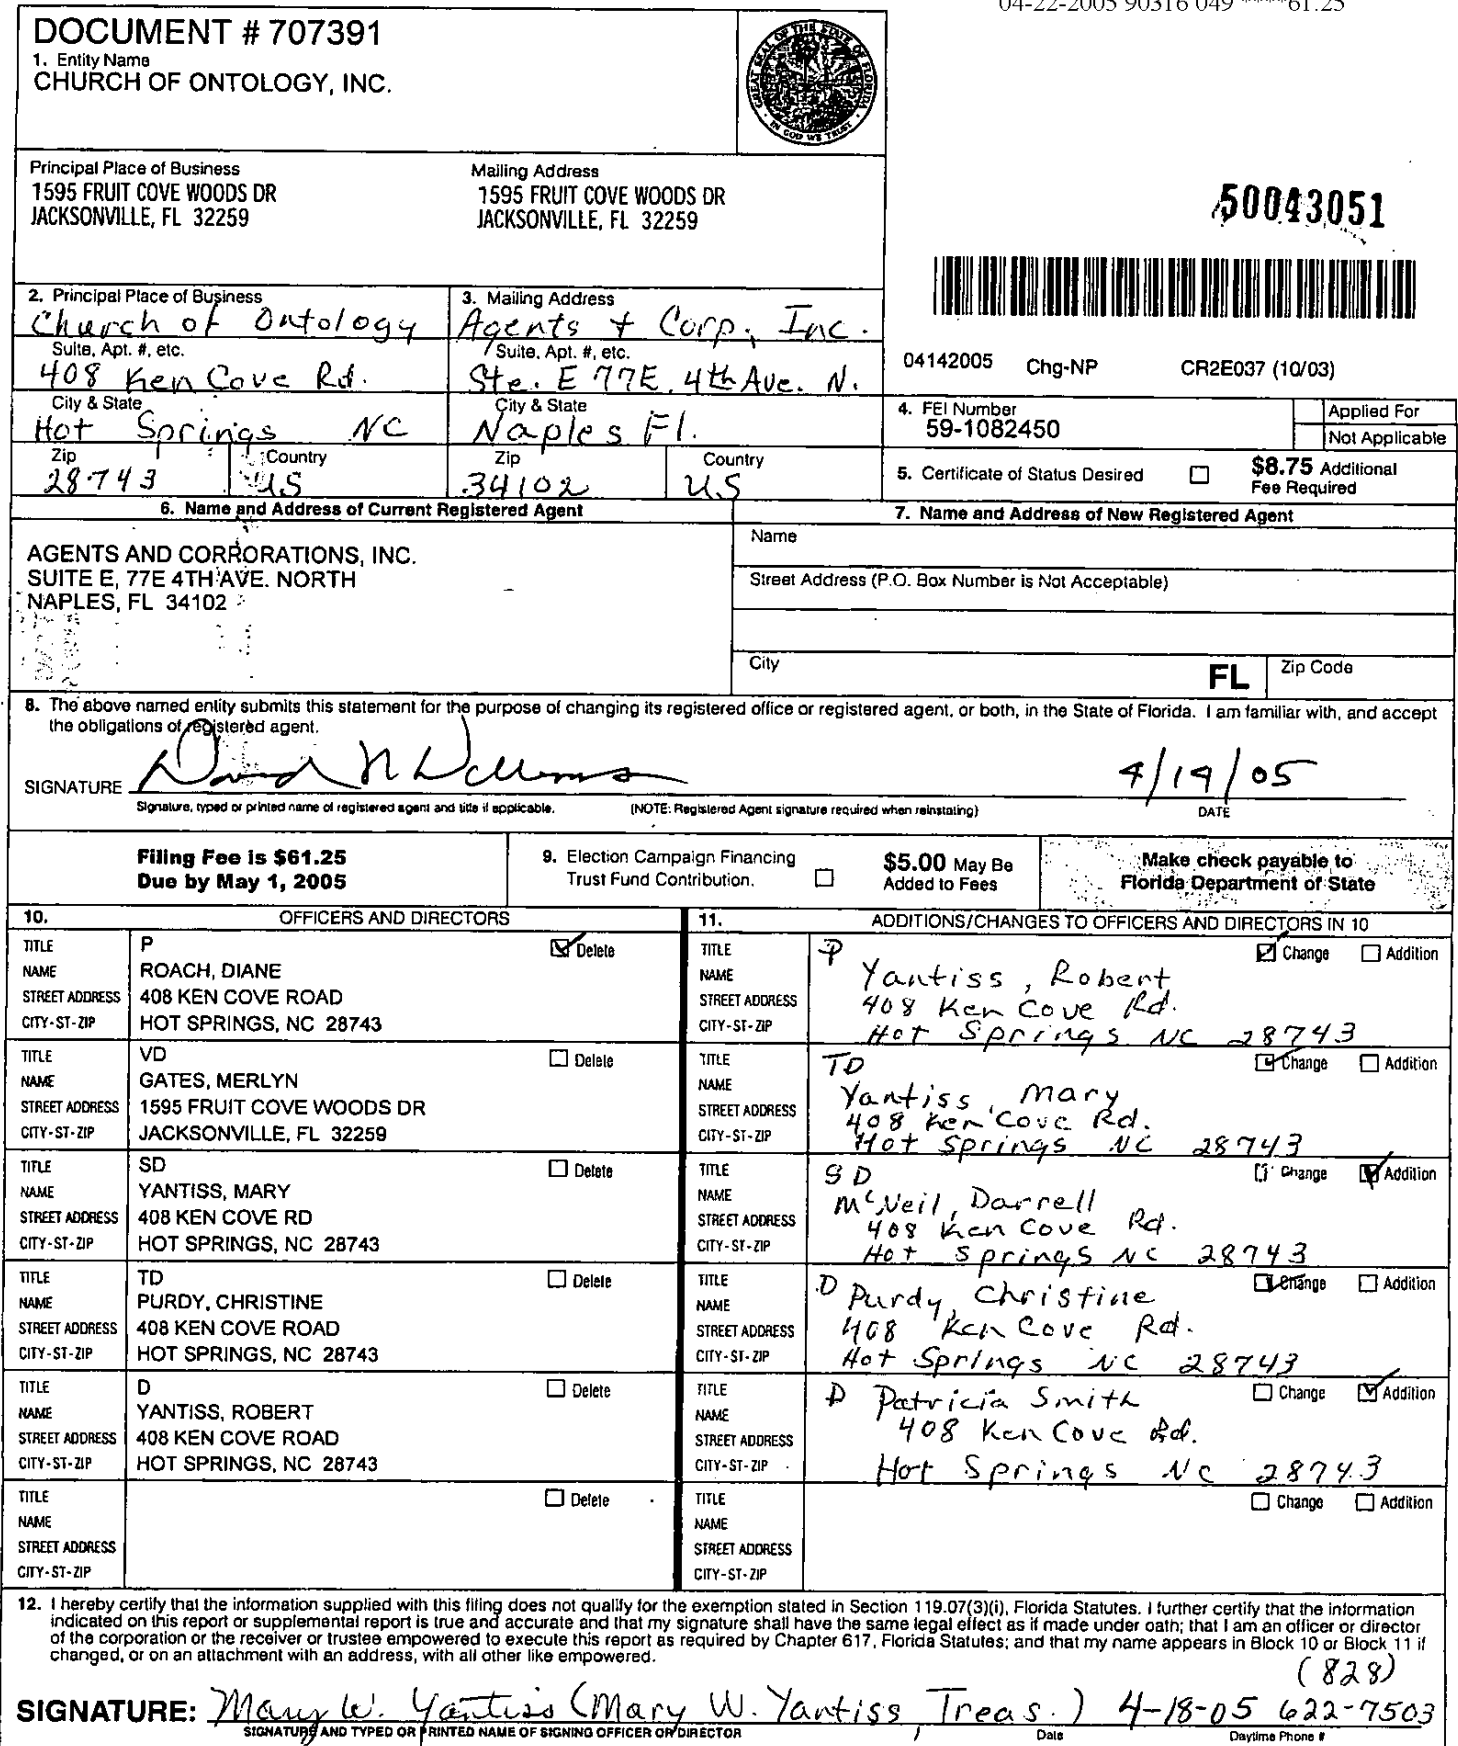 04-22-2005 90316 049 ****61.25
DOCUMENT # 707391
1. Entity Name
CHURCH OF ONTOLOGY, INC.
GREAT SEAL OF THE STATE OF FLORIDA
IN GOD WE TRUST
Principal Place of Business
1595 FRUIT COVE WOODS DR
JACKSONVILLE, FL 32259
Mailing Address
1595 FRUIT COVE WOODS DR
JACKSONVILLE, FL 32259
50043051
2. Principal Place of Business
Church of Ontology
Suite, Apt. #, etc.
408 Ken Cove Rd.
City & State
Hot Springs NC
Zip Country
28743 US
3. Mailing Address
Agents + Corp, Inc.
Suite, Apt. #, etc.
Ste. E 77E. 4th Ave. N.
City & State
Naples Fl.
Zip Country
34102 US
04142005 Chg-NP CR2E037 (10/03)
4. FEI Number
59-1082450
Applied For
Not Applicable
5. Certificate of Status Desired
$8.75 Additional
Fee Required
6. Name and Address of Current Registered Agent
AGENTS AND CORRORATIONS, INC.
SUITE E, 77E 4TH AVE. NORTH
NAPLES, FL 34102
7. Name and Address of New Registered Agent
Name
Street Address (P.O. Box Number is Not Acceptable)
City FL Zip Code
8. The above named entity submits this statement for the purpose of changing its registered office or registered agent, or both, in the State of Florida. I am familiar with, and accept
the obligations of registered agent.
SIGNATURE David N Williams 4/19/05
Signature, typed or printed name of registered agent and title if applicable. (NOTE: Registered Agent signature required when reinstating) DATE
Filing Fee is $61.25
Due by May 1, 2005
9. Election Campaign Financing
Trust Fund Contribution.
$5.00 May Be
Added to Fees
Make check payable to
Florida Department of State
10. OFFICERS AND DIRECTORS
TITLE P Delete
NAME ROACH, DIANE
STREET ADDRESS 408 KEN COVE ROAD
CITY-ST-ZIP HOT SPRINGS, NC 28743
TITLE VD Delete
NAME GATES, MERLYN
STREET ADDRESS 1595 FRUIT COVE WOODS DR
CITY-ST-ZIP JACKSONVILLE, FL 32259
TITLE SD Delete
NAME YANTISS, MARY
STREET ADDRESS 408 KEN COVE RD
CITY-ST-ZIP HOT SPRINGS, NC 28743
TITLE TD Delete
NAME PURDY, CHRISTINE
STREET ADDRESS 408 KEN COVE ROAD
CITY-ST-ZIP HOT SPRINGS, NC 28743
TITLE D Delete
NAME YANTISS, ROBERT
STREET ADDRESS 408 KEN COVE ROAD
CITY-ST-ZIP HOT SPRINGS, NC 28743
TITLE Delete
NAME
STREET ADDRESS
CITY-ST-ZIP
11. ADDITIONS/CHANGES TO OFFICERS AND DIRECTORS IN 10
TITLE P Change Addition
NAME Yantiss, Robert
STREET ADDRESS 408 Ken Cove Rd.
CITY-ST-ZIP Hot Springs NC 28743
TITLE TD Change Addition
NAME Yantiss, Mary
STREET ADDRESS 408 Ken Cove Rd.
CITY-ST-ZIP Hot Springs NC 28743
TITLE SD Change Addition
NAME McNeil, Darrell
STREET ADDRESS 408 Ken Cove Rd.
CITY-ST-ZIP Hot Springs NC 28743
TITLE D Change Addition
NAME Purdy, Christine
STREET ADDRESS 408 Ken Cove Rd.
CITY-ST-ZIP Hot Springs NC 28743
TITLE D Change Addition
NAME Patricia Smith
STREET ADDRESS 408 Ken Cove Rd.
CITY-ST-ZIP Hot Springs NC 28743
TITLE Change Addition
NAME
STREET ADDRESS
CITY-ST-ZIP
12. I hereby certify that the information supplied with this filing does not qualify for the exemption stated in Section 119.07(3)(i), Florida Statutes. I further certify that the information
indicated on this report or supplemental report is true and accurate and that my signature shall have the same legal effect as if made under oath; that I am an officer or director
of the corporation or the receiver or trustee empowered to execute this report as required by Chapter 617, Florida Statutes; and that my name appears in Block 10 or Block 11 if
changed, or on an attachment with an address, with all other like empowered.
(828)
SIGNATURE: Mary W. Yantiss (Mary W. Yantiss, Treas.) 4-18-05 622-7503
SIGNATURE AND TYPED OR PRINTED NAME OF SIGNING OFFICER OR DIRECTOR Date Daytime Phone #